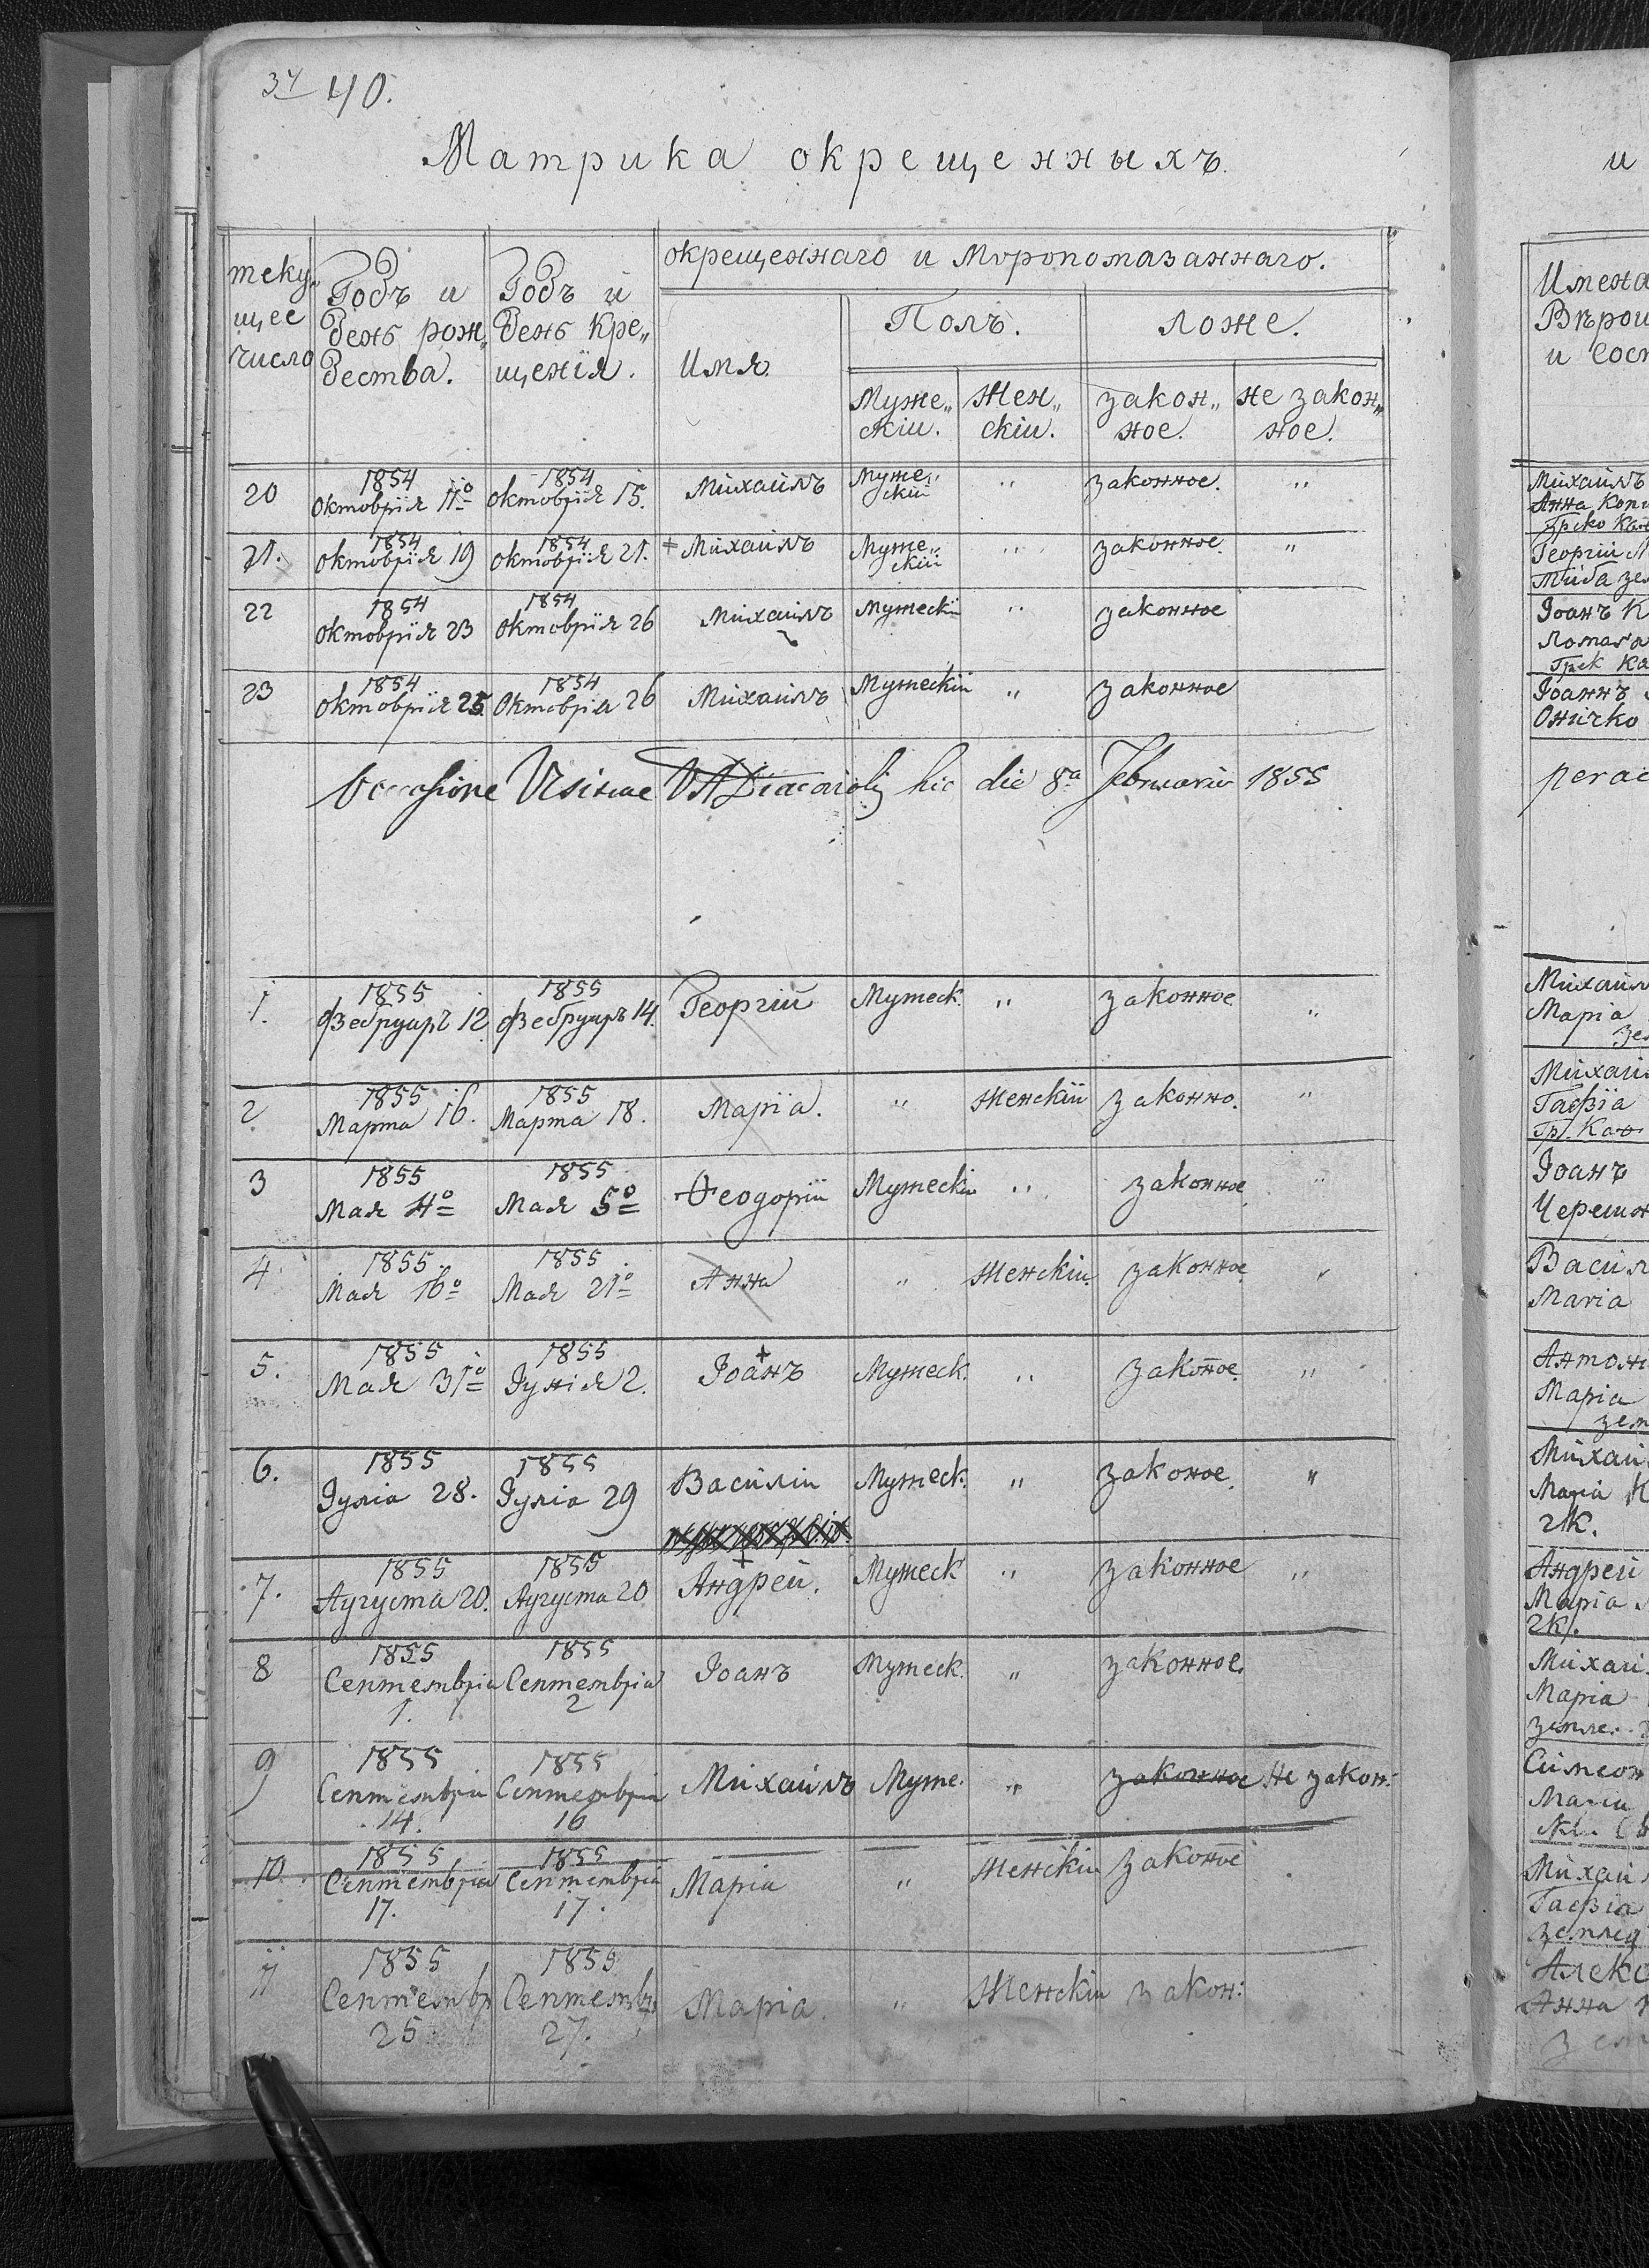 37 40.
Матрика окрещенныхъ.
теку„
щее
число
Годъ и
день рож„
дества.
Годъ и
день кре„
щенїя.
окрещеннаго и Мѵропомазаннаго.
Имя
Полъ.
ложе.
Муже„
скіи.
Жен„
скіи.
закон„
ное.
не закон„
ное.
20 1854 Октоврїя 11º 1854 Октоврїя 15. Михаилъ Муже„ скій „ законное. „
21. 1854 Октоврїя 19 1854 Октоврїя 21. + Михаилъ Муже„ скій „ законное. „
22 1854 Октоврїя 23 1854 Октоврїя 26 Михаилъ Мужескїй „ законное
23 1854 Октоврїя 25 1854 Октоврїя 26 Михаилъ Мужескій „ законное
Occasione Visitae V A Diaconalis hic die 8ª Februarii 1855
1. 1855 Фебруаръ 12 1855 Фебруаръ 14. Георгій Мужеск. „ законное „
2 1855 Марта 16. 1855 Марта 18. Марїа. „ Женскїй законно. „
3 1855 Мая 4º 1855 Мая 5º Ѳеодорїй Мужескій „ законное „
4 1855 Мая 16º 1855 Мая 21º Анна „ Женскіи. законное „
5. 1855 Мая 31º 1855 Іунїя 2. + Іоанъ Мужеск. „ законое. „
6. 1855 Іуліа 28. 1855 Іуліа 29 Василіи Мужеск. „ законое. „
7. 1855 Аугуста 20. 1855 Аугуста 20 + Андрей. Мужеск „ законное „
8 1855 Септемвріа 1. 1855 Септемвріа 2 Іоанъ Мужеск. „ законное.
9 1855 Септемвріа 14. 1855 Септемвріа 16 Михаилъ Муже. „ законное Не закон:
10. 1855 Септемвріа 17. 1855 Септемвріа 17. Маріа „ Женскіи законое
11 1855 Септемвр 25 1855 Септемвр 27. Маріа. „ Женскіи закон:
и
Имена
Вѣрои
и Сост
Михаилъ
Анна
Греко Каѳ
Георгій
зем
Іоанъ К
Грек Ка
Іоаннъ
Оничко
perac
Михаил
Маріа
зем
Михаи
Гафїа
Гр. Каѳ
Іоанъ
Черешн
Васил
Маріа
Антон
Маріа
зем
Михаи
Маріа
гК.
Андрей
Маріа
гК.
Михаи
Маріа
земле.
Симеон
Маріа
Михаи
Гафіа
землед
Алекс
Анна
зем